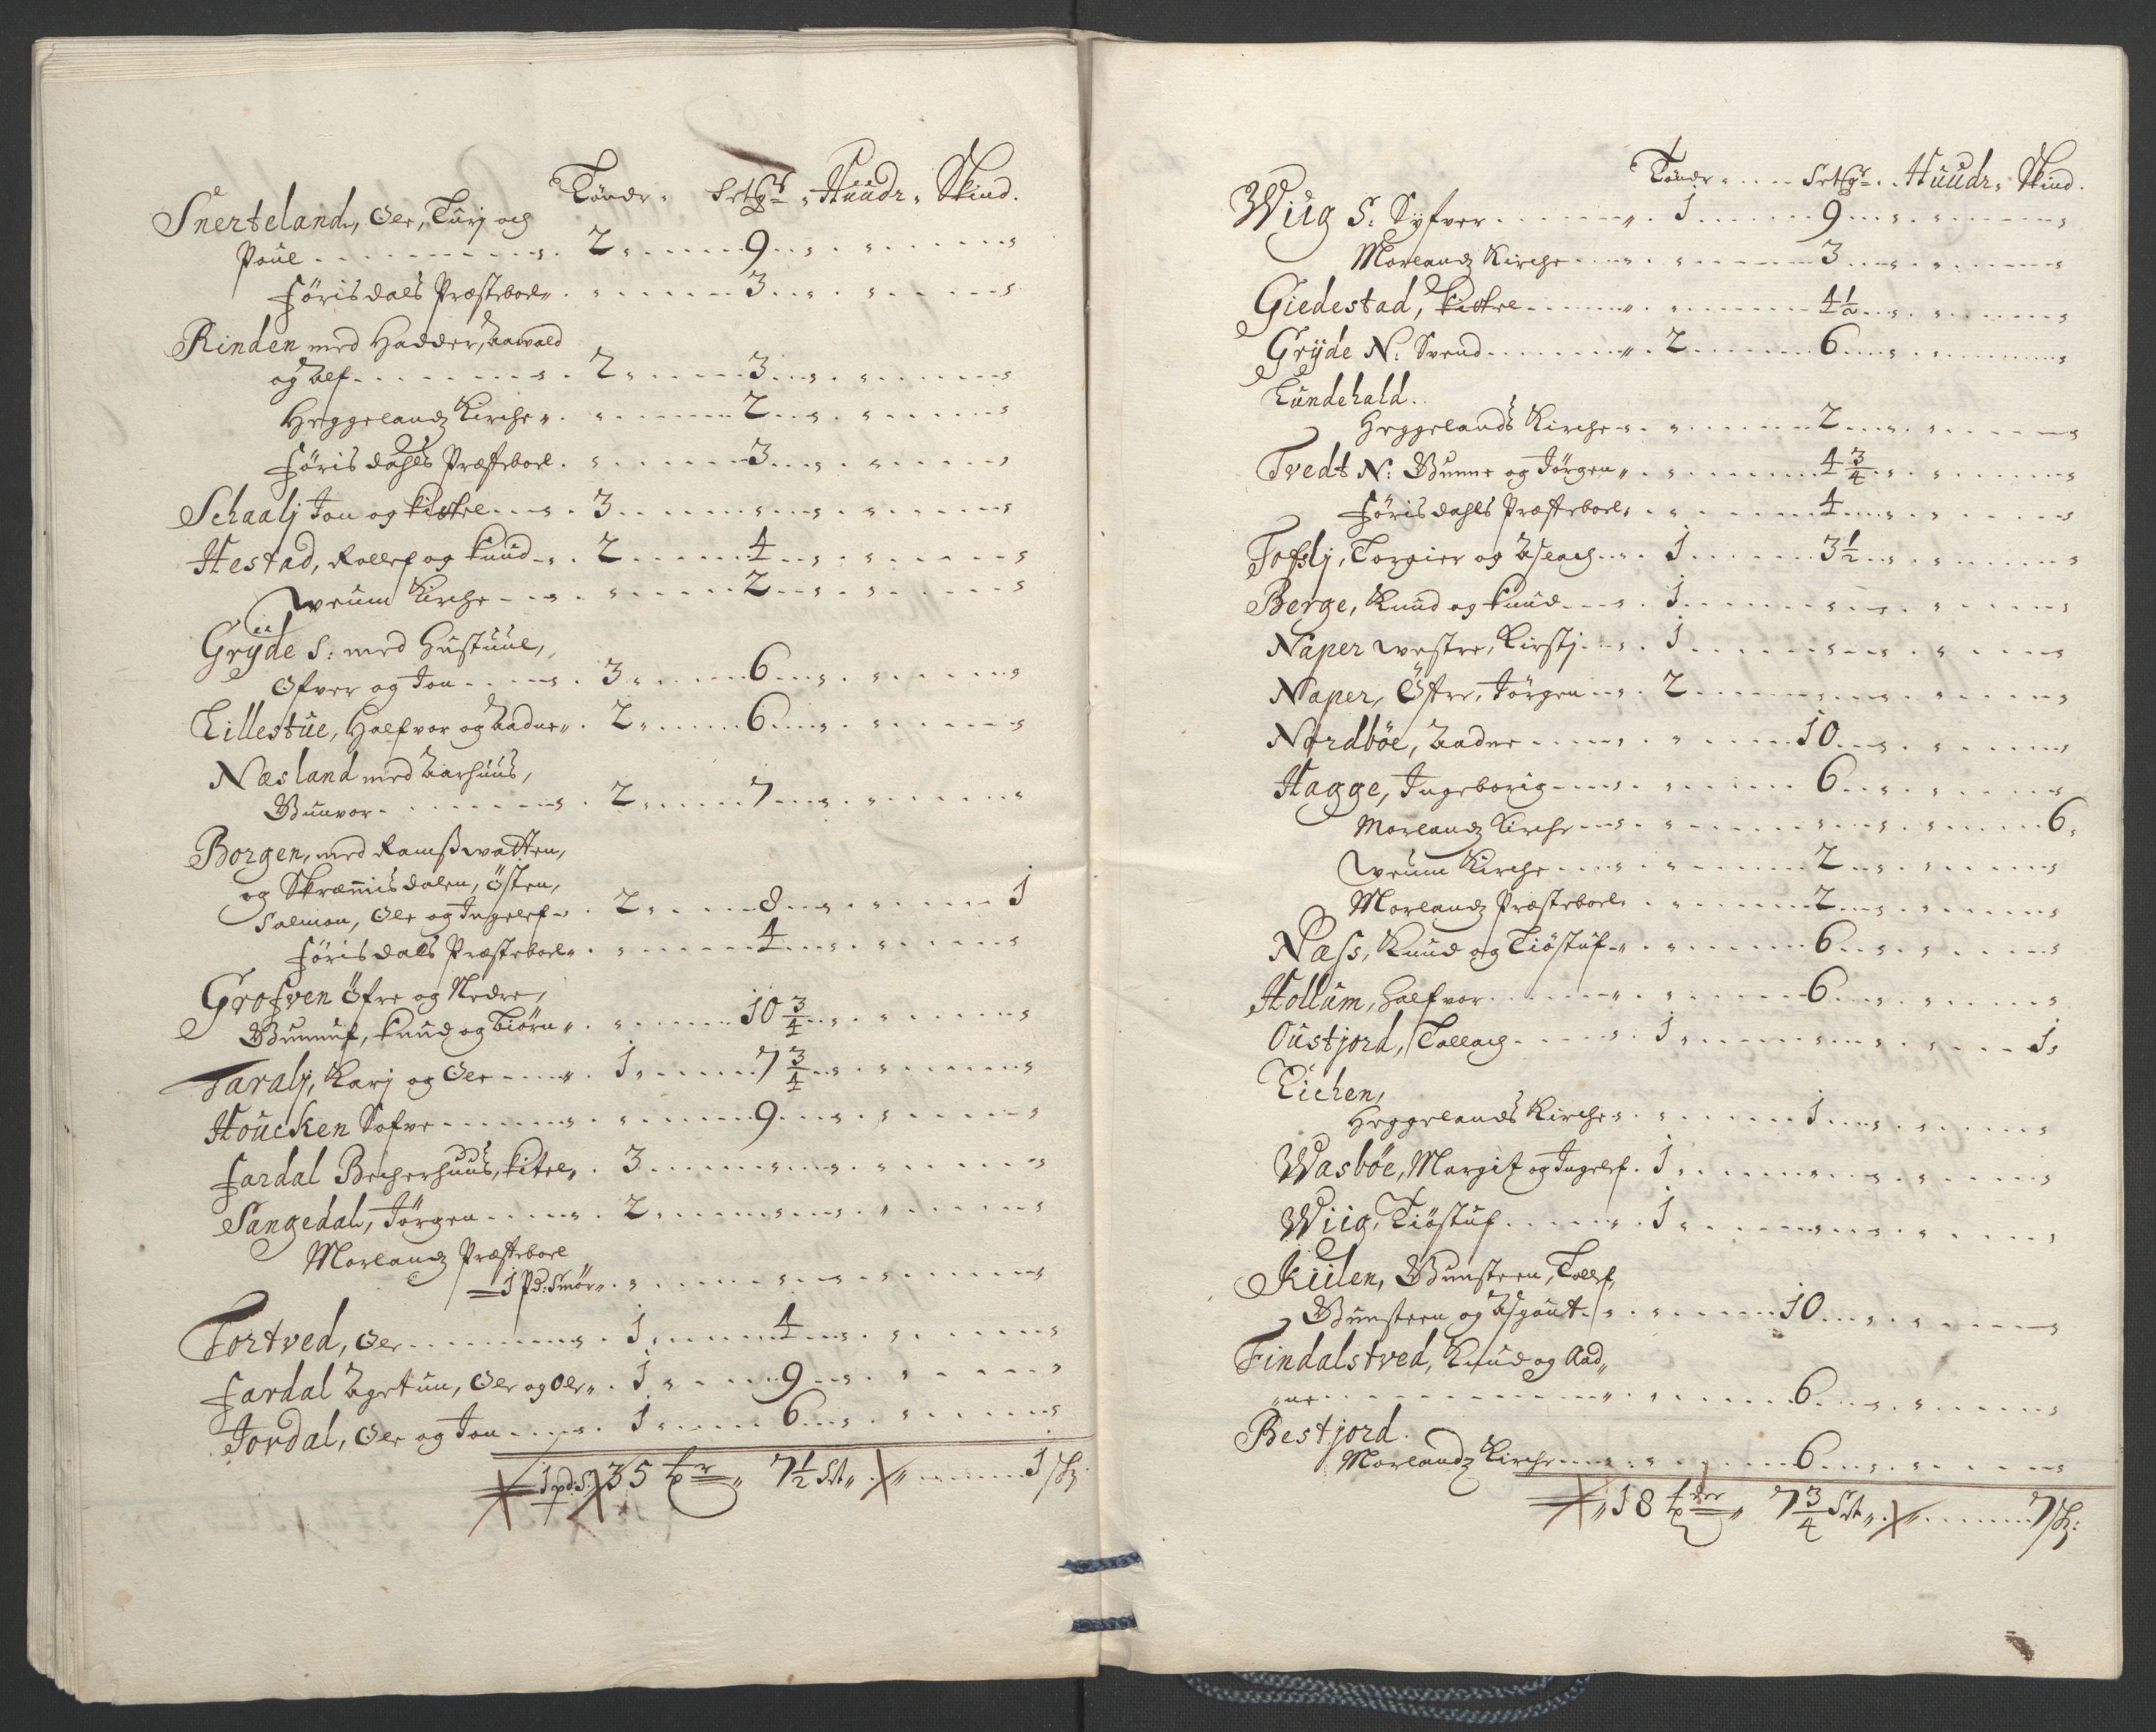 Töndr. Setgr. Huudr. Skind.
Snerteland, Ole, Turj og
Poul 2 9
Föris dals Præsteboel 3
Rinden med Hadder, Aasvald
og Alf 2 3
Heggelandz Kirche 2
Föris dahls Præsteboel 3
Schaalj Jon og Kittel 3
Hestad, Rollef og Knud 2 4
Weum Kirche 2
Gryde S: med Hustuul,
Ofver og Jon 3 6
Lillestue, Halfvor og Aadne 2 6
Næsland med Aarhuus,
Gunvor 2 7
Borgen, med Ramsswatten,
og Skræmisdalen, Östen,
Salmon, Ole og Ingelef 2 8 1
Föris dals Præsteboel 4
Grofven Öfre og Nedre,
Gunnuf, Knud og Biörn 10 3/4
Taralj, Karj og Ole 1 7 3/4
Houcken Sofve 9
Fardal Becherhuus, Kitel 3
Sangedal, Jörgen 2
Morlandz Præsteboel
1 Pd: Smör
Tortved, Ole 1 4
Fardal Agetun, Ole og Ole 1 9
Jordal, Ole og Jon 1 6
1 pd: S: 35 tr 7 1/2 Set 1 Sk:
Tönder Setgr. Huudr. Skind.
Wiig S: Syfver 1 9
Morlandz Kirche 3
Giedestad, Kittel 4 1/2
Gryde N: Svend 2 6
Lundehald.
Heggelands Kirche 2
Tvedt N: Gunne og Jörgen 4 3/4
Föris dahls Præsteboel 4
Tofslj, Torgier og Aslach 1 3 1/2
Berge, Knud og Knud 1
Naper westre, Kirstj 1
Naper, Östre, Jörgen 2
Nordböe, Aadne 10
Hagge, Ingeborig 6
Morlandz Kirche 6
Weum Kirche 2
Morlandz Præsteboel 2
Næss, Knud og Tiöstuf 6
Hollum, Halfvor 6
Oustjord, Tollach 1 1
Eichen,
Heggelands Kirche 1
Wasböe, Margit og Ingelef 1
Wiig, Tiöstuf 1
Kiilen, Gunsteen, Tollef,
Gunsteen og Asgout 10
Findalstved, Knud og Aad„
„ne 6
Bestjord.
Morlandz Kirche 6
18 tder 7 3/4 Set 7 Sk: